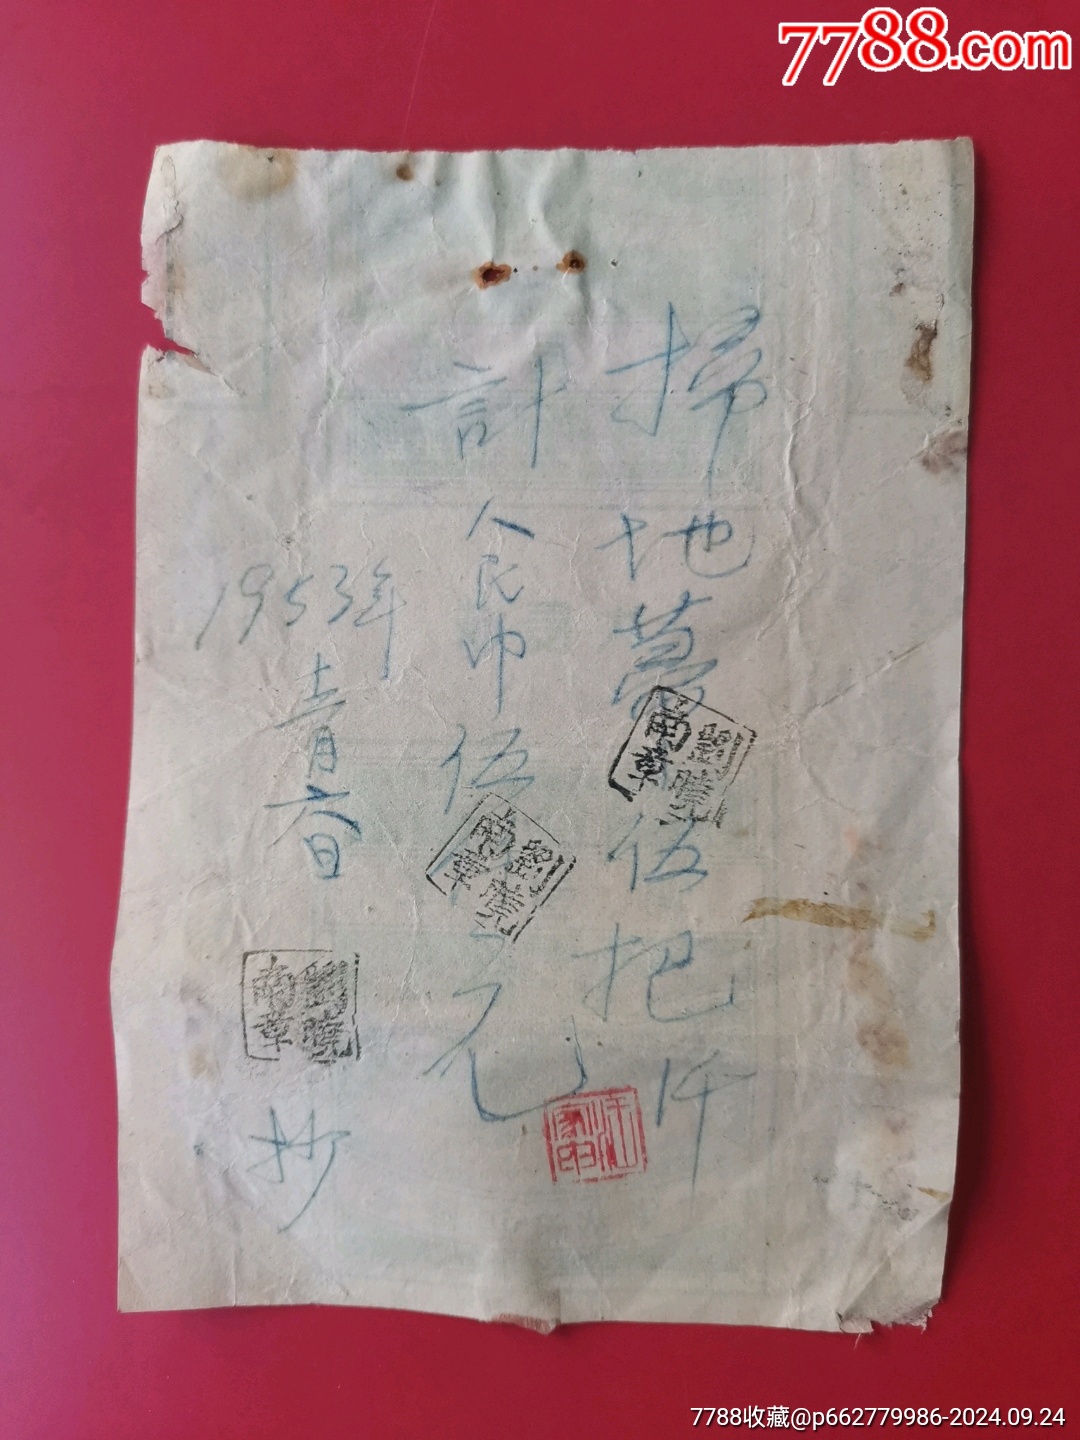 7788.com
掃地蒿伍把仟
計人民巾伍元
1953年
青月六日
抄
劉曉南章
劉曉南章
劉曉南章
7788收藏@p662779986-2024.09.24